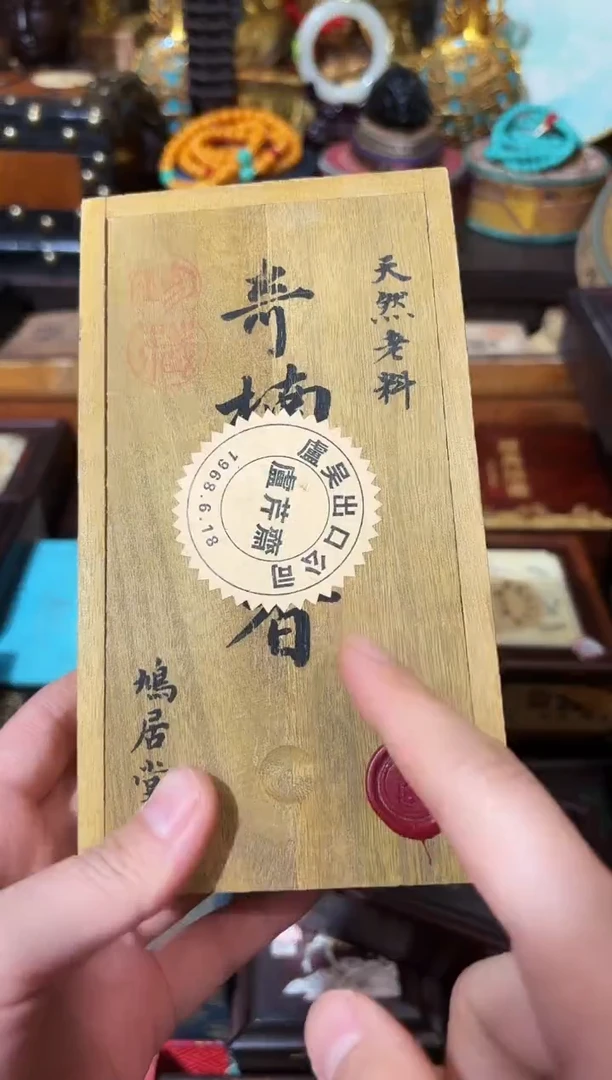 天然老料
奇楠香
鳩居堂
盧吴出口公司
盧芹齋
1968.6.18